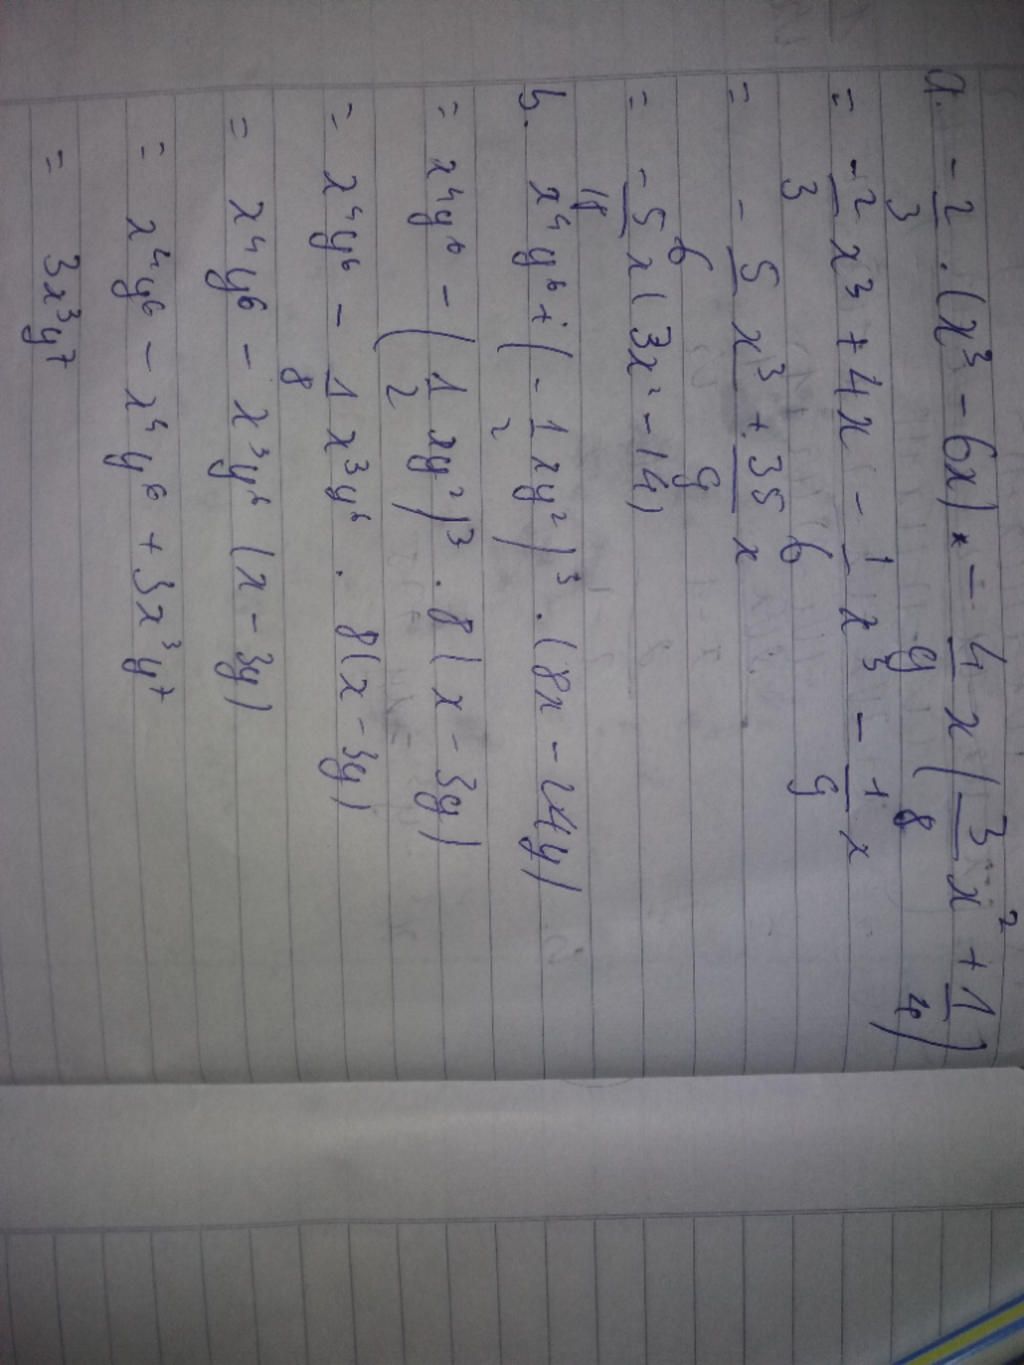 a. -2/3 . (x³ - 6x) . - 4/9 x (3/8 x² + 1/4)
= -2/3 x³ + 4x - 1/6 x³ - 1/9 x
= - 5/6 x³ + 35/9 x
= -5/18 x (3x² - 14)
b. x⁴y⁶ + (-1/2 xy²)³ . (8x - 24y)
= x⁴y⁶ - (1/2 xy²)³ . 8(x - 3y)
= x⁴y⁶ - 1/8 x³y⁶ . 8(x - 3y)
= x⁴y⁶ - x³y⁶ (x - 3y)
= x⁴y⁶ - x⁴y⁶ + 3x³y⁷
= 3x³y⁷